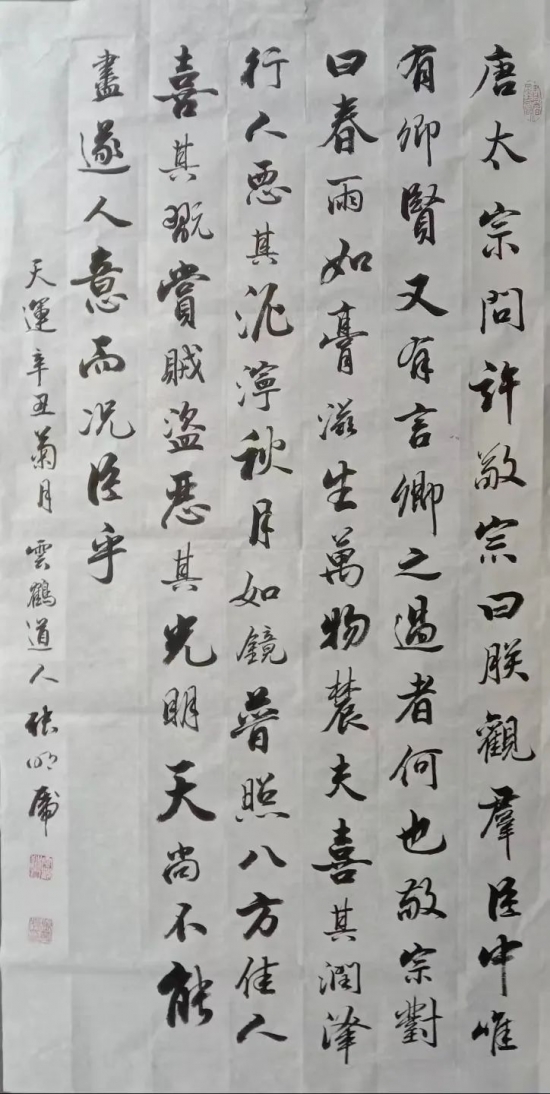 唐太宗問許敬宗曰朕觀羣臣中唯
有卿賢又有言卿之過者何也敬宗對
曰春雨如膏滋生萬物農夫喜其潤澤
行人惡其泥濘秋月如鏡普照八方佳人
喜其翫賞賊盜惡其光明天尚不能
盡遂人意而况臣乎
天運辛丑菊月雲鶴道人張明